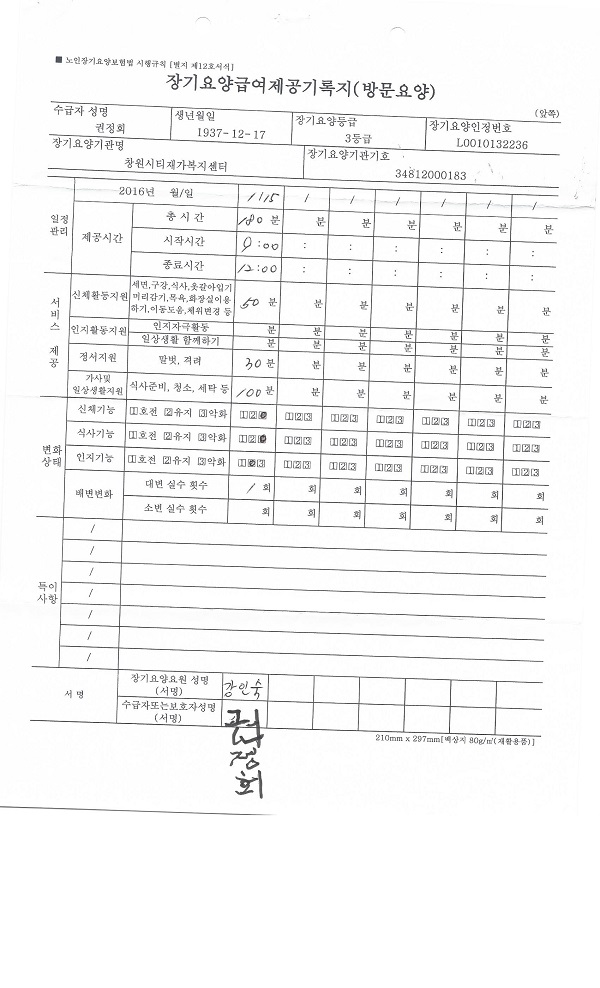 ■ 노인장기요양보험법 시행규칙 [별지 제12호서식]
장기요양급여제공기록지(방문요양)
(앞쪽)
수급자 성명 생년월일 장기요양등급 장기요양인정번호
권정회 1937-12-17 3등급 L0010132236
장기요양기관명 장기요양기관기호
창원시티재가복지센터 34812000183
2016년 월/일 1/15 / / / / / /
일정 관리 제공시간 총 시 간 180 분 분 분 분 분 분 분
시작시간 9:00 : : : : : :
종료시간 12:00 : : : : : :
서비스 제공
신체활동지원 세면,구강,식사,옷갈아입기 50 분 분 분 분 분 분 분
머리감기,목욕,화장실이용
하기,이동도움,체위변경 등
인지활동지원 인지자극활동 분 분 분 분 분 분 분
일상생활 함께하기 분 분 분 분 분 분 분
정서지원 말벗, 격려 30 분 분 분 분 분 분 분
가사및 일상생활지원 식사준비, 청소, 세탁 등 100 분 분 분 분 분 분 분
변화 상태
신체기능 1호전 2유지 3악화 12 123 123 123 123 123 123
식사기능 1호전 2유지 3악화 12 123 123 123 123 123 123
인지기능 1호전 2유지 3악화 1 3 123 123 123 123 123 123
배변변화 대변 실수 횟수 1 회 회 회 회 회 회 회
소변 실수 횟수 회 회 회 회 회 회 회
특이 사항
/
/
/
/
/
/
/
서 명 장기요양요원 성명 (서명) 강인숙
수급자또는보호자성명 (서명) 권정회
210mm x 297mm[백상지 80g/㎡(재활용품)]